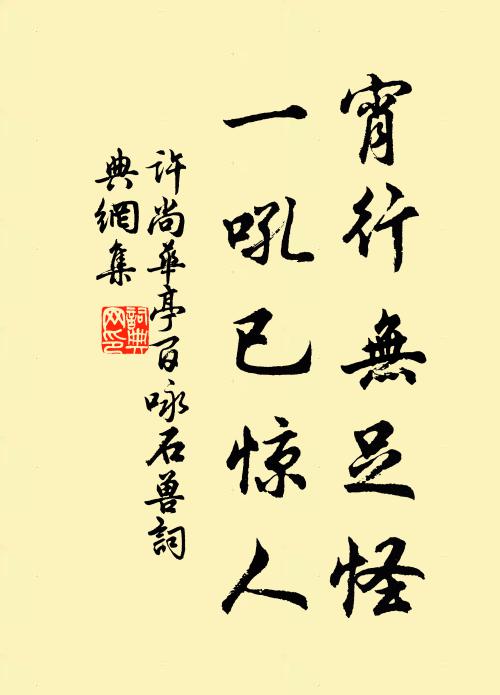 宵行無足怪
一吼已惊人
许尚華亭百咏石兽詞
典網集
詞典
网印